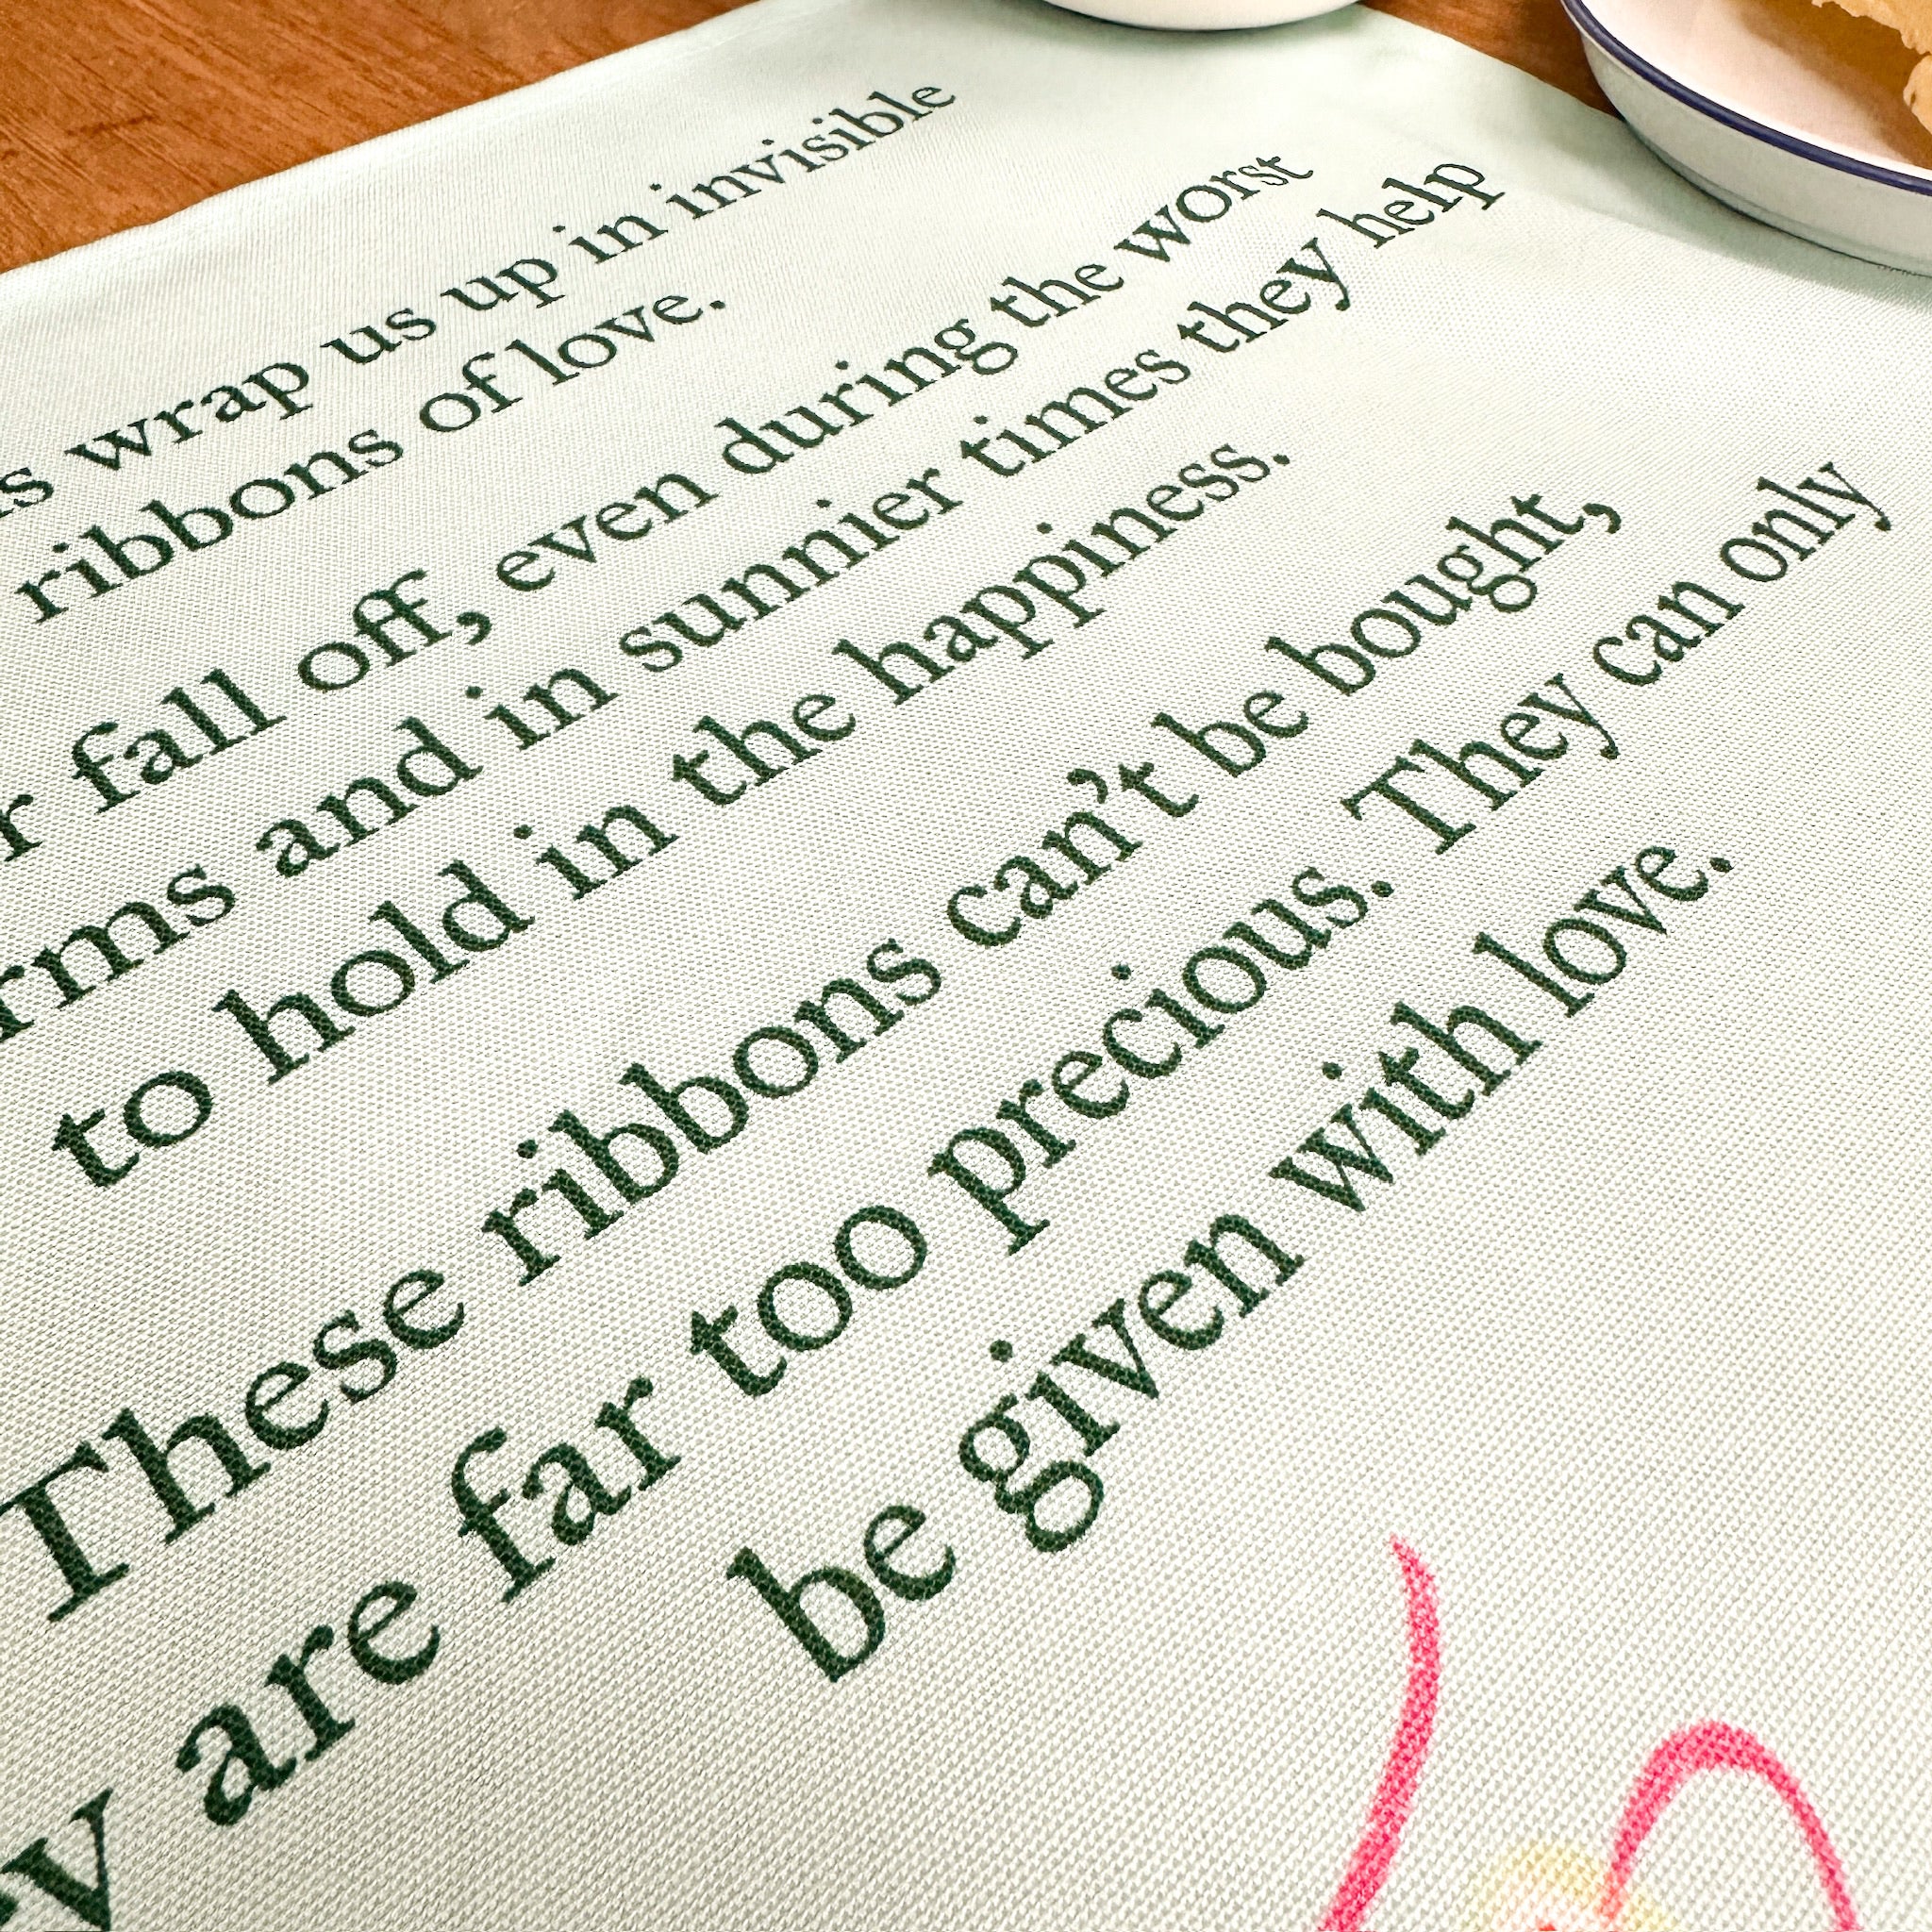 wrap us up in invisible
ribbons of love.
fall off, even during the worst
and in sunnier times they help
to hold in the happiness.
These ribbons can't be bought,
are far too precious. They can only
be given with love.